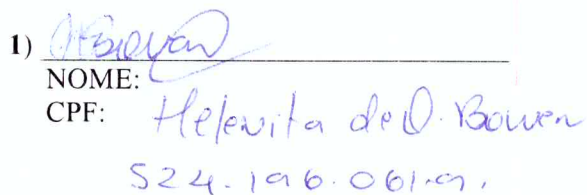 1)
NOME:
CPF: Helenita de O. Bowen
524.196.061.9.